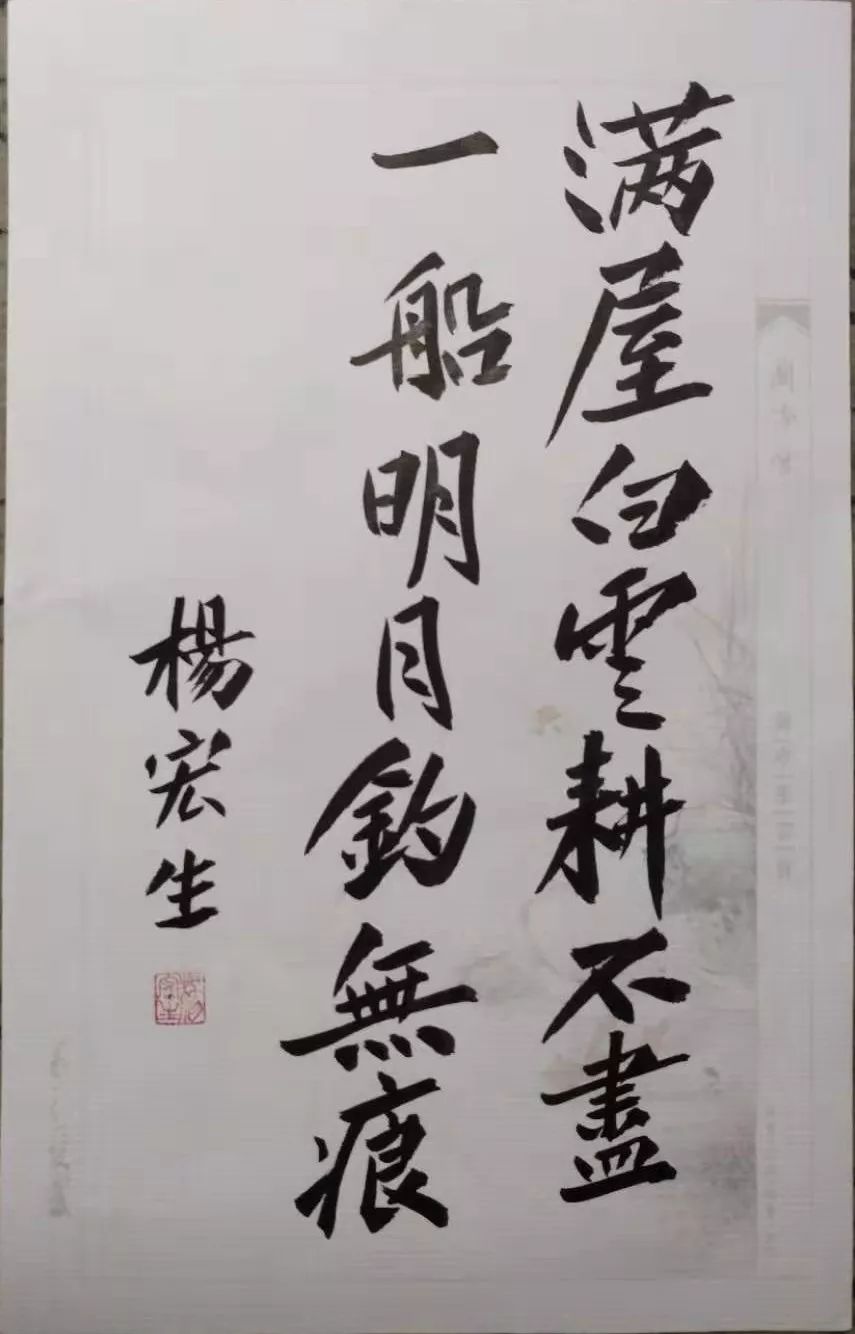 满屋白雲耕不盡
一船明月釣無痕
楊宏生